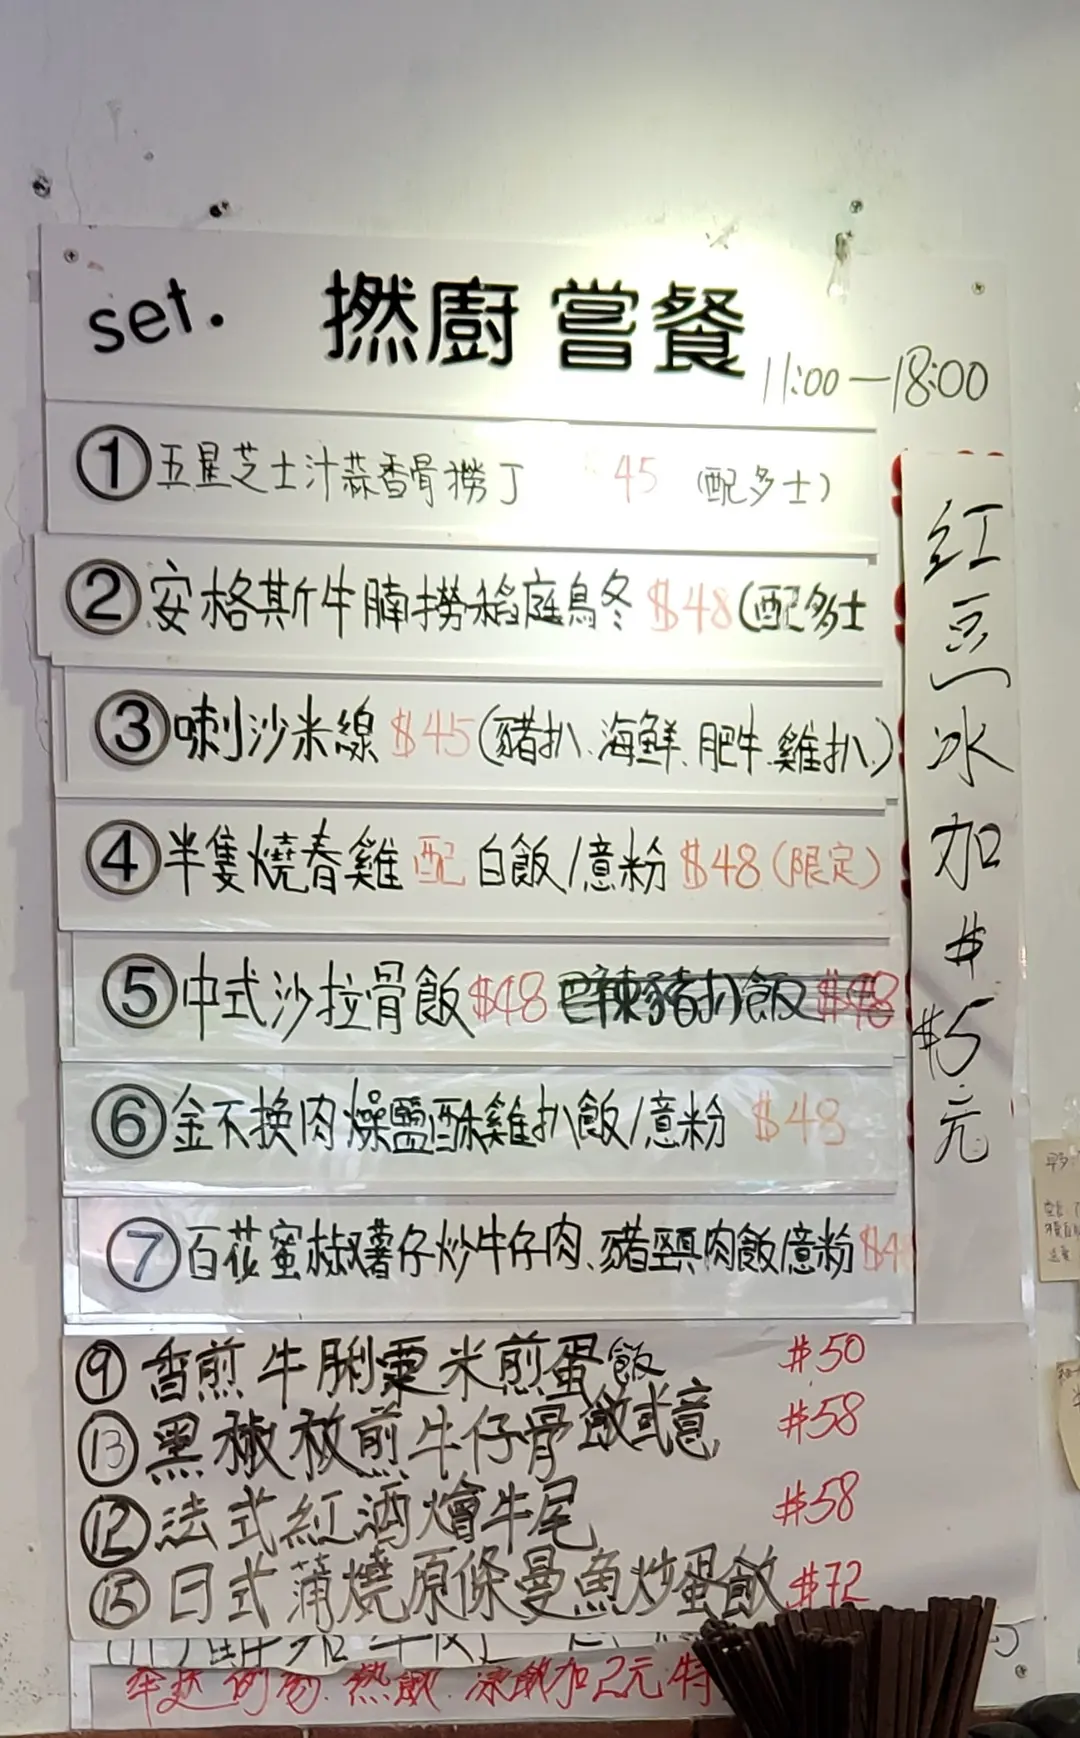 set. 撚廚 嘗餐
11:00—18:00
①五星芝士汁蒜香骨撈丁 45 (配多士)
②安格斯牛腩撈稻庭烏冬 $48(配多士
③喇沙米線 $45(豬扒、海鮮、肥牛、雞扒)
④半隻燒春雞 配 白飯/意粉 $48(限定)
⑤中式沙拉骨飯$48 巴辣豬扒飯 $48
⑥金不換肉燥鹽酥雞扒飯/意粉 $48
⑦百花蜜椒薯仔炒牛仔肉、豬頸肉飯/意粉 $4
⑨香煎牛脷粟米煎蛋飯 $50
⑬黑椒校煎牛仔骨飯或意 $58
⑫法式紅酒燴牛尾 $58
⑮日式蒲燒原條曼魚炒蛋飯 $72
熱飲.凍飲加2元.特
紅豆冰加$
$5元